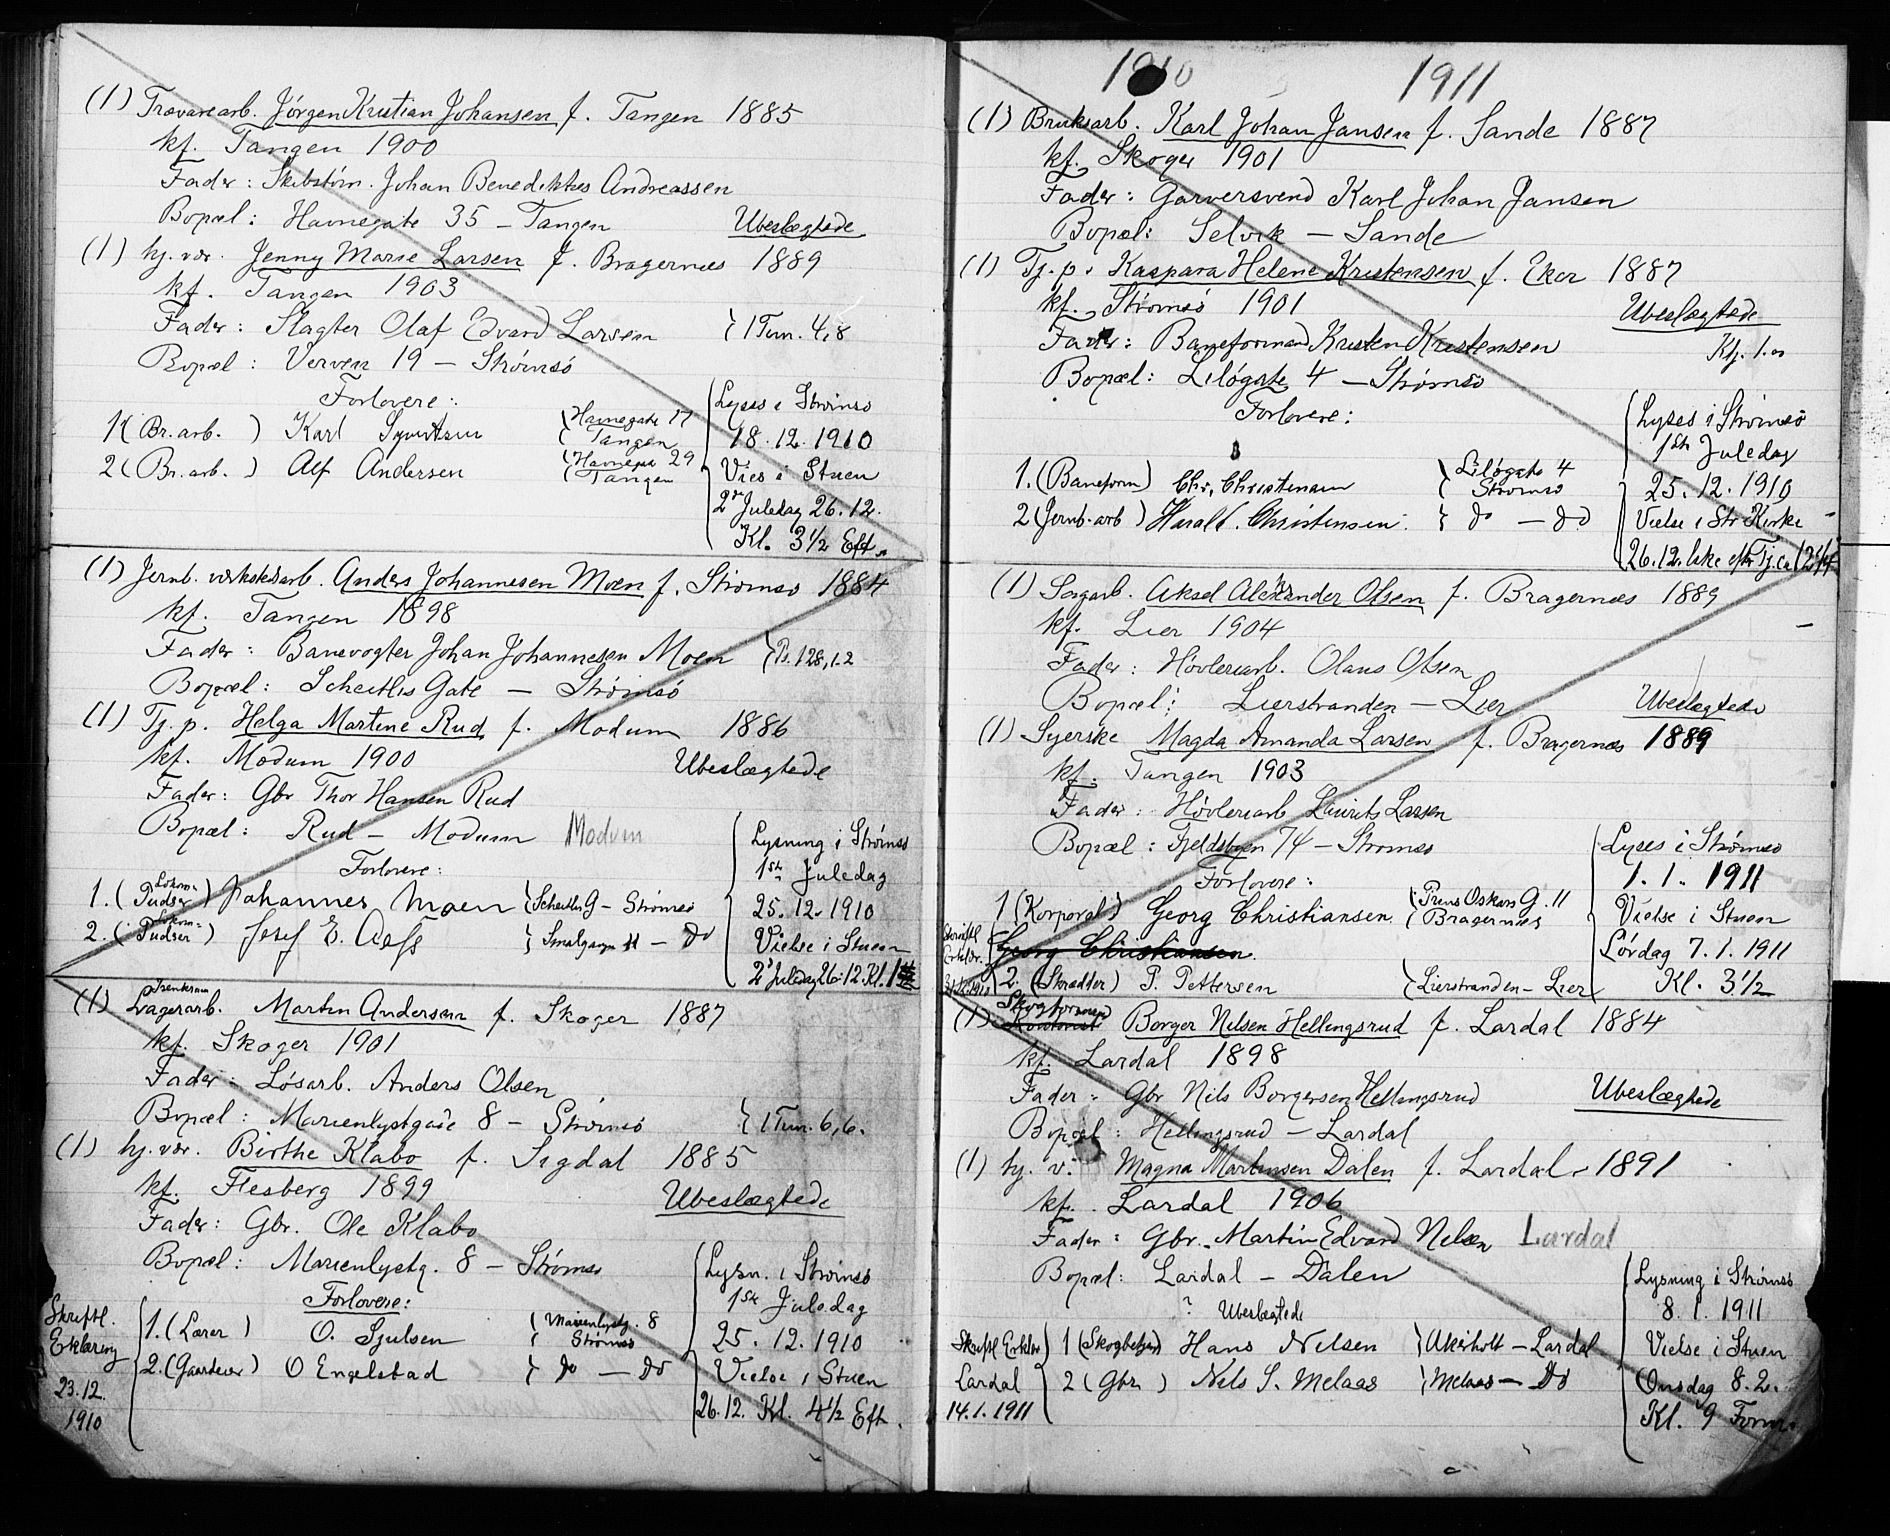 (1) Trævarearb. Jørgen Kristian Johansen f. Tangen 1885
kf. Tangen 1900
Fader: Skibstøm. Johan Benediktes Andreassen
Bopæl: Havnegate 35 – Tangen Ubeslægtede
(1) hj. vær. Jenny Marie Larsen f. Bragernæs 1889
kf. Tangen 1903
Fader: Slagter Olaf Edvard Larsen } 1 Tim. 4,8
Bopæl: Verven 19 – Strømsø
Forlovere:
1 (Br. arb.) Karl Syvertsen { Havnegate 17 Tangen
2 (Br. arb.) Alf Andersen { Havnegt 29 Tangen
Lyses i Strømsø
18.12.1910
Vies i Stuen
2den Juledag 26.12.
Kl. 3½ Eft.
(1) Jernb. verkstedarb. Anders Johannesen Moen f. Strømsø 1884
kf. Tangen 1898
Fader: Banevogter Johan Johannesen Moen } Ps. 128, 1.2
Bopæl: Scheitlis Gate – Strømsø
(1) Tj. p. Helga Martine Rud f. Modum 1886
kf. Modum 1900 Ubeslægtede
Fader: Gbr Thor Hansen Rud
Bopæl: Rud – Modum Modum
Forlovere:
1. (Lokom. Pudser) Johannes Moen } Scheitlis G – Strømsø
2. (Lokom. Pudser) Josef E. } Smalgangen 11 – Do
Lysning i Strømsø
1ste Juledag
25.12.1910
Vielse i Stuen
2' Juledag 26.12. Kl. 1
(1) Lagerarb. Martin Andersen f. Skoger 1887
kf. Skoger 1901
Fader: Løsarb. Anders Olsen
Bopæl: Marienlystgade 8 – Strømsø } 1 Tim. 6,6.
(1) hj. vær. Birthe Klabo f. Sigdal 1885
kf. Flesberg 1899 Ubeslægtede
Fader: Gbr. Ole Klabo
Bopæl: Marienlystg. 8 – Strømsø
Forlovere:
1. (Lærer) O. Sjulsen { Marienlystg. 8 Strømsø
2. (Gaardeier) O Engelstad } Do – Do
Skriftl.
Erklæring
23.12.
1910
Lysn. i Strømsø
1ste Juledag
25.12.1910
Vielse i Stuen
26.12. Kl. 4½ Eft.
1910 1911
(1) Bruksarb. Karl Johan Jansen f. Sande 1887
kf. Skoger 1901
Fader: Garversvend Karl Johan Jansen
Bopæl: Selvik – Sande
(1) Tj. p. Kaspara Helene Kristensen f. Eker 1887
kf. Strømsø 1901 Ubeslægtede
Fader: Baneformand Kristen Kristensen
Bopæl: Liløgate 4 – Strømsø
Forlovere:
1. (Baneform) Chr. Christensen } Liløgate 4 Strømsø
2 (Jernb. arb) Harald. Christensen } do – do
Lyses i Strømsø
1ste Juledag
25.12.1910
Vielse i Str Kirke
26.12. like efter Tj. ca
(1) Sagarb. Aksel Alexander Olsen f. Bragernæs 1889
kf. Lier 1904
Fader: Høvleriarb. Olaus Olsen
Bopæl: Lierstranden – Lier Ubeslægtede
(1) Syerske Magda Amanda Larsen f. Bragernæs 1889
kf. Tangen 1903
Fader: Høvleriarb Laurits Larsen
Bopæl: Fjeldsbyen 74 – Strømsø
Forlovere:
1 (Korporal) Georg Christiansen { Prins Oskars G. 11 Bragernæs
Georg Christiansen
2. (Skrædder) P. Pettersen } Lierstranden – Lier
Skriftl
Erklær.
Lyses i Strømsø
1.1. 1911
Vielse i Stuen
Lørdag 7.1.1911
Kl. 3½
(1) Borger Nilsen Hellingsrud f. Lardal 1884
kf. Lardal 1898
Fader: Gbr Nils Borgersen Hellingsrud Ubeslægtede
Bopæl: Hellingsrud – Lardal
(1) hj. v. Magna Martinsen Dalen f. Lardal – 1891
kf. Lardal 1906
Fader: Gbr. Martin Edvard Nilsen Lardal
Bopæl: Lardal – Dalen
? Ubeslægtede
1 (Skogbetjent) Hans Nilsen } – Lardal
2 (Gbr) Nils S. Melaas } Melaas – Do
Skriftl Erklær
Lardal
14.1.1911
Lysning i Strømsø
8.1.1911
Vielse i Stuen
Onsdag 8.2.
Kl. 9 Form.